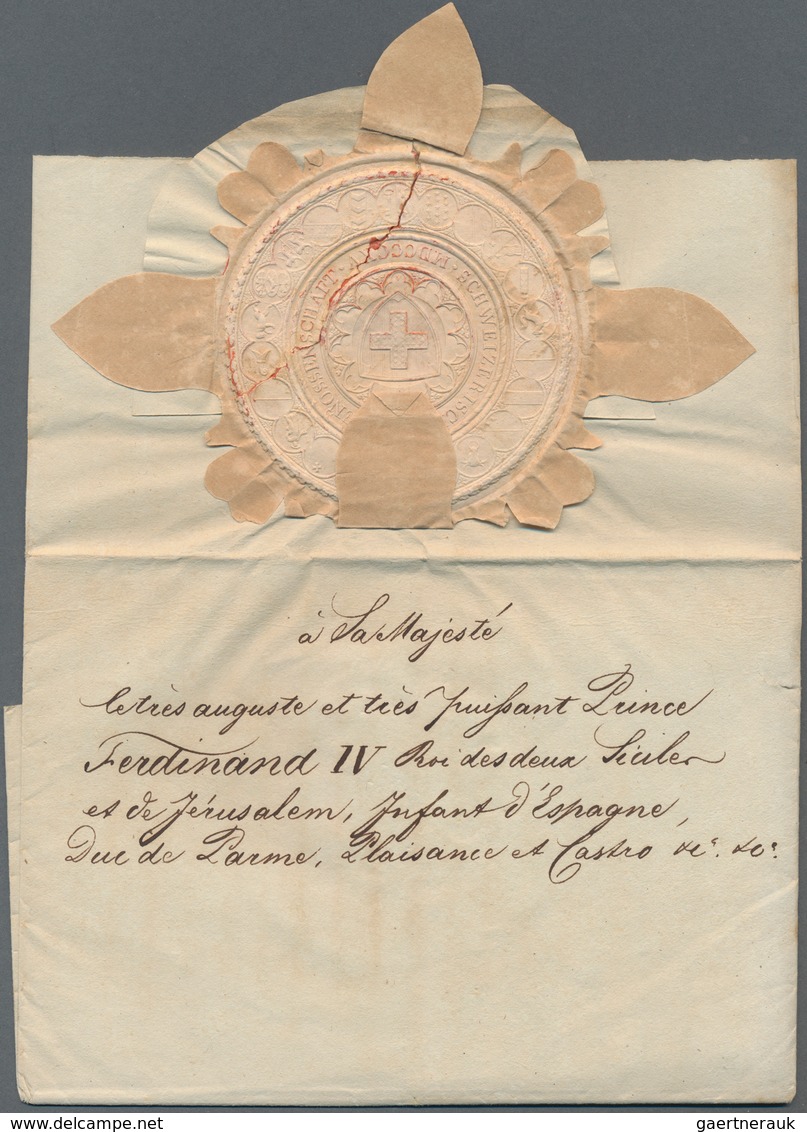 SCHWEIZERISC
NOSSENSCHAFT
à Sa Majesté
le très auguste et très puissant Prince
Ferdinand IV Roi des deux Siciles
et de Jérusalem, Infant d'Espagne,
Duc de Parme, Plaisance et Castro &c. &c.
gaertnerauk